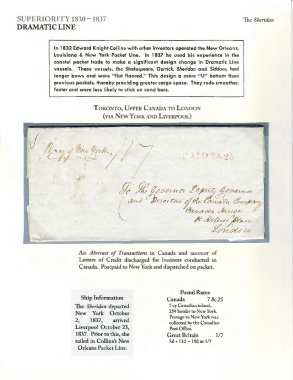 SUPERIORITY 1830 – 1837
The Sheridan
DRAMATIC LINE
In 1832 Edward Knight Collins with other investors operated the New Orleans,
Louisiana & New York Packet Line. In 1837 he used his experience in the
coastal packet trade to make a significant design change in Dramatic Line
vessels. These vessels, the Shakespeare, Garrick, Sheridan and Siddons, had
longer bows and were "flat floored." This design a more "U" bottom than
previous packets, thereby providing greater cargo space. They rode smoother,
faster and were less likely to stick on sand bars.
TORONTO, UPPER CANADA TO LONDON
(VIA NEW YORK AND LIVERPOOL)
New York
1/7
PAID 7&25
To The Governor Deputy Governor
and Directors of the Canada Company
Canada House
St Helens Place
London
An Abstract of Transactions in Canada and account of
Letters of Credit discharged for business conducted in
Canada. Postpaid to New York and dispatched on packet.
Ship Information
The Sheridan departed
New York October
2, 1837, arrived
Liverpool October 23,
1837. Prior to this, she
sailed in Collins's New
Orleans Packet Line.
Postal Rates
Canada 7 & 25
7 cy Canadian inland,
25¢ border to New York.
Postage to New York was
collected by the Canadian
Post Office.
Great Britain 1/7